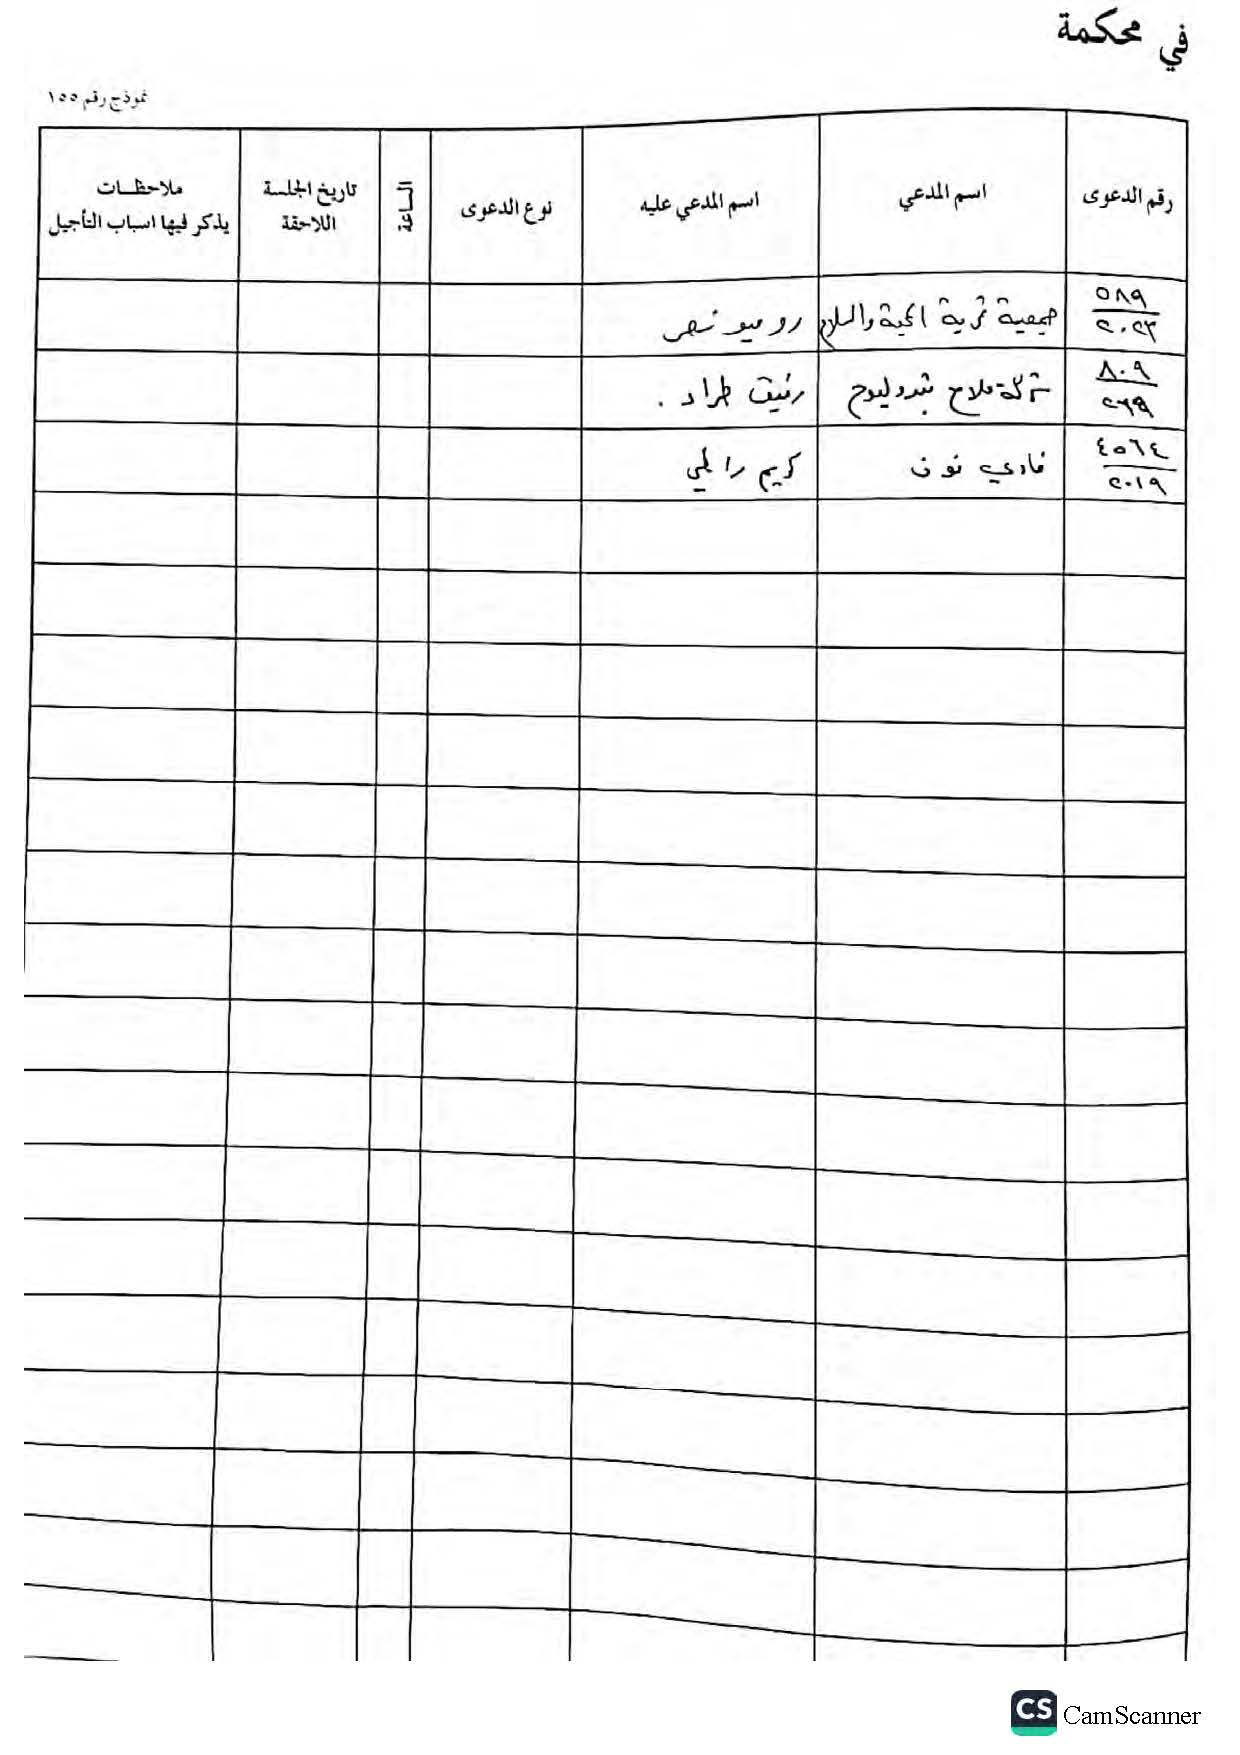 في محكمة
نموذج رقم ١٥٥
رقم الدعوى
اسم المدعي
اسم المدعي عليه
نوع الدعوى
الساعة
تاريخ الجلسة
اللاحقة
ملاحظات
يذكر فيها اسباب التأجيل
٥٨٩
٢٠٢٣
جمعية قرية المحبة والسلام
روميو نصر
٨٠٩
شركة ملاح
رئيف طراد .
٤٥٦٤
٢٠١٩
فادي نون
كريم
CS CamScanner